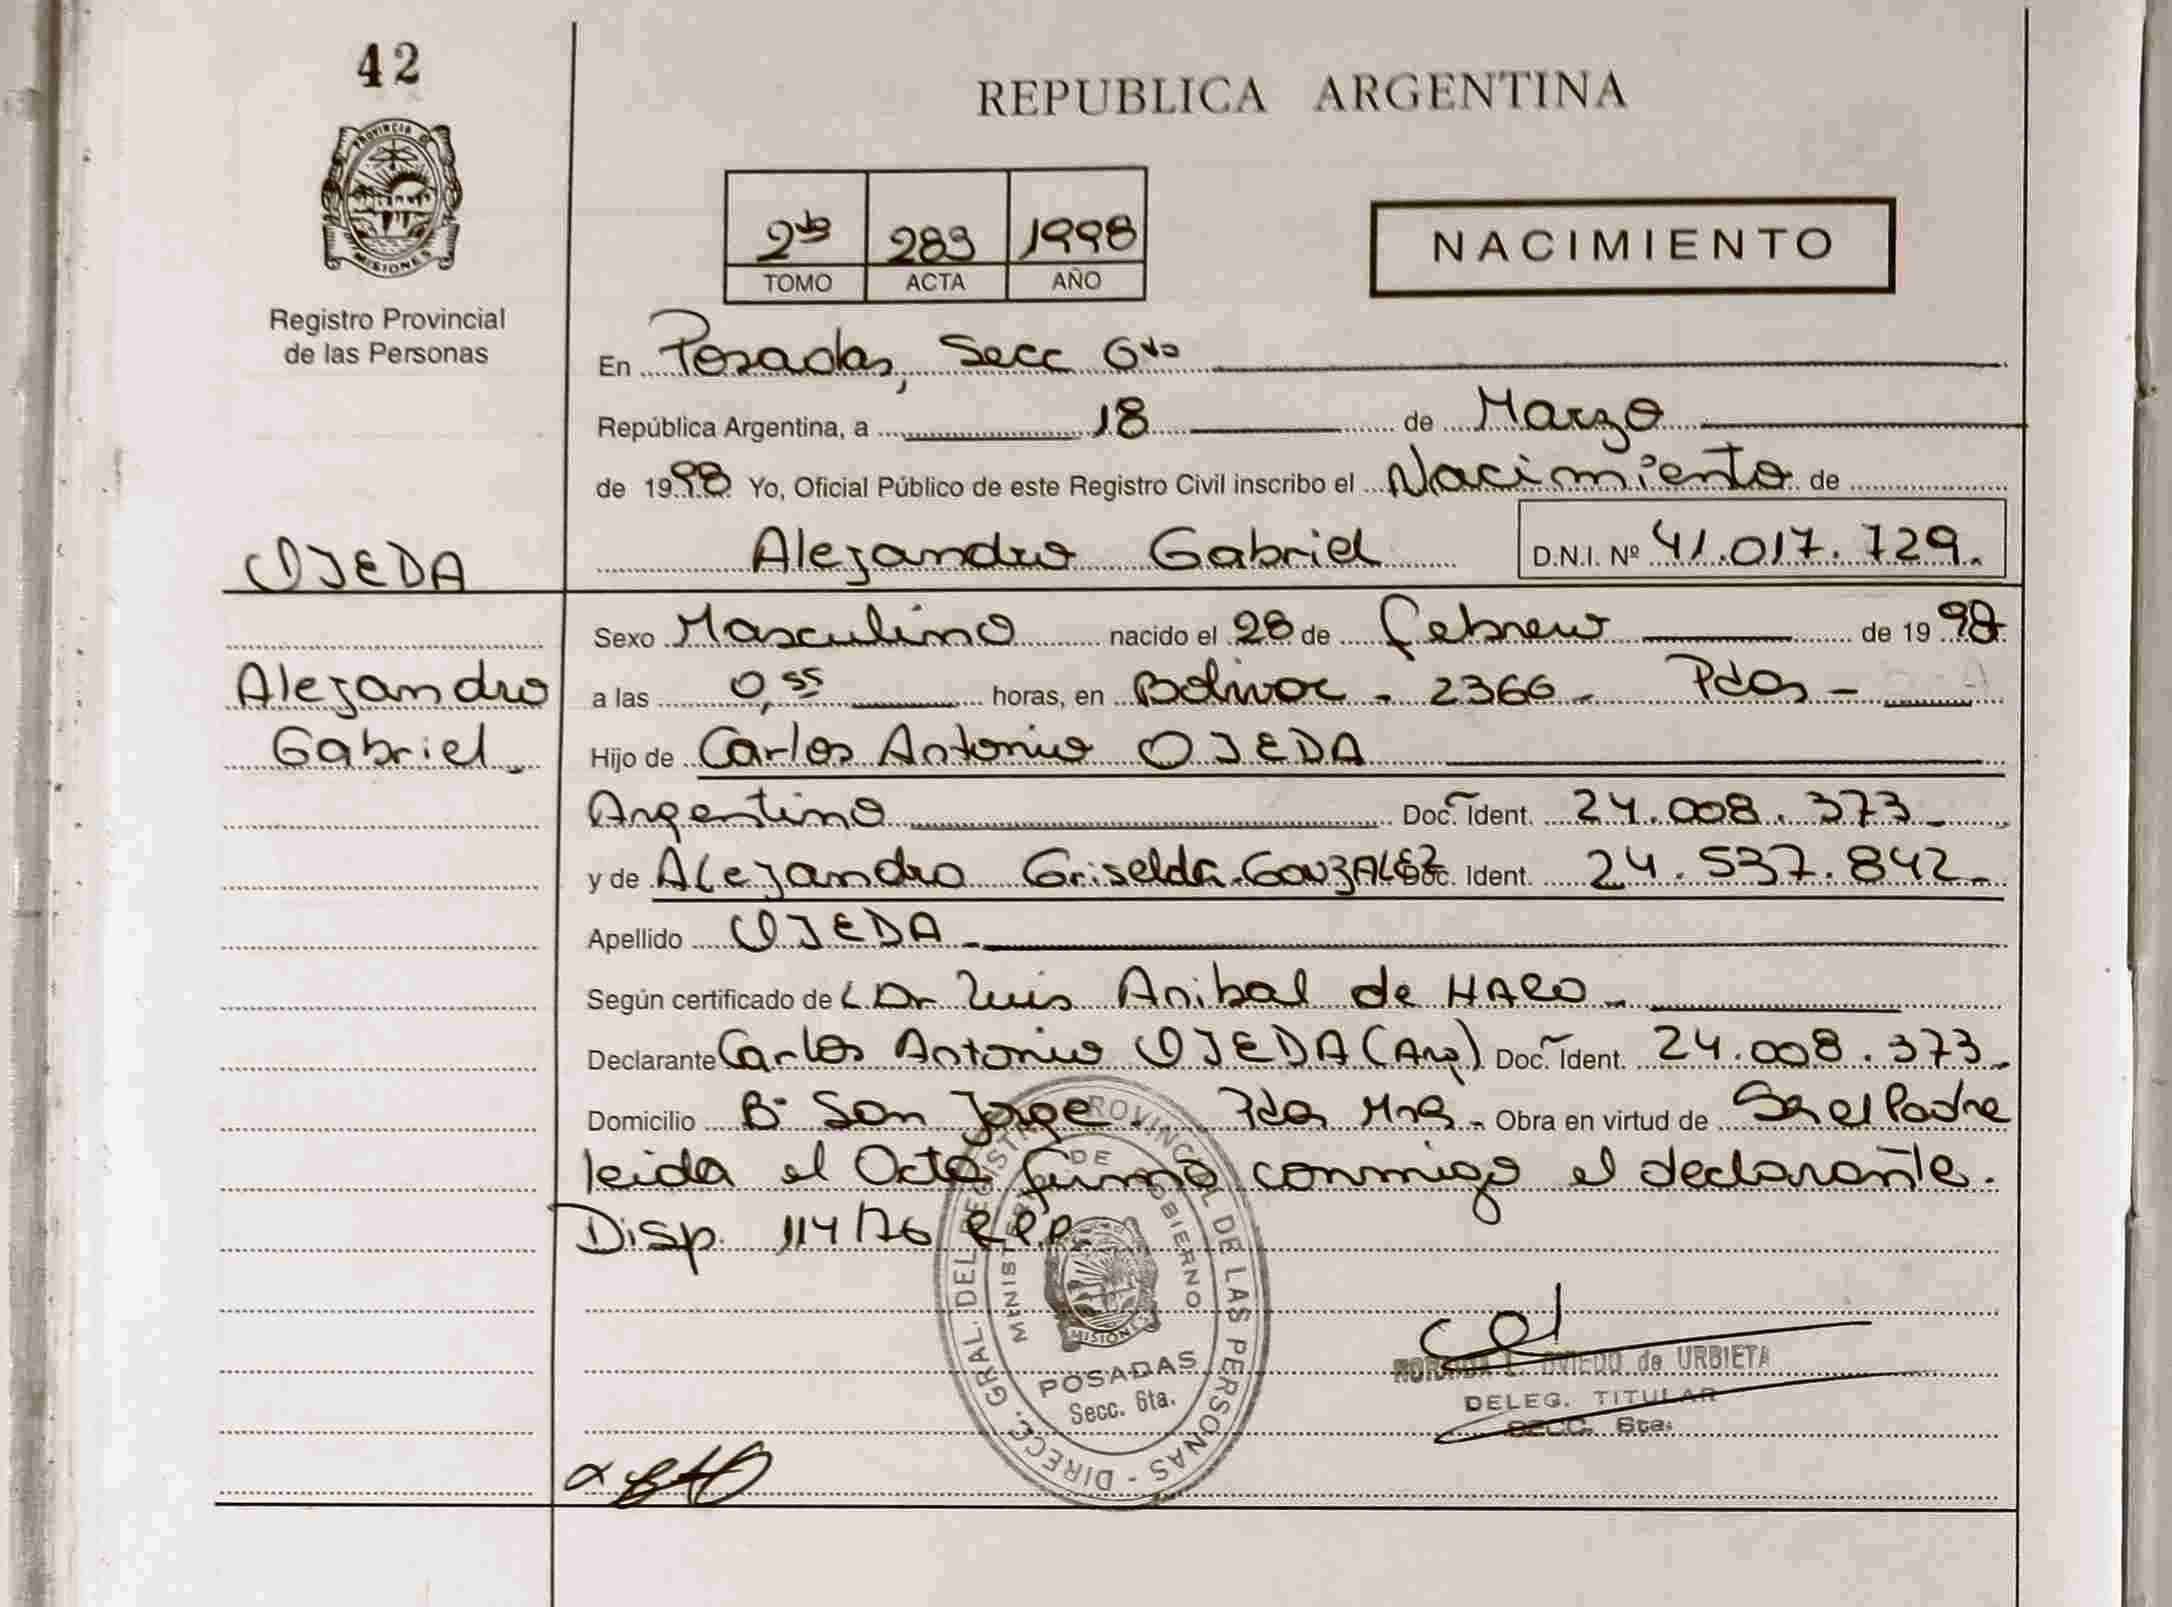 42
REPUBLICA ARGENTINA
PROVINCIA DE
MISIONES
Registro Provincial
de las Personas
2do 283 1998
TOMO ACTA AÑO
NACIMIENTO
En Posadas, Secc 6ta
República Argentina, a 18 de Marzo
de 1998 Yo, Oficial Público de este Registro Civil inscribo el Nacimiento de
OJEDA
Alejandro Gabriel D.N.I. Nº 41.017.729.
Sexo Masculino nacido el 28 de Febrero de 1998
Alejandro
Gabriel
a las 0,55 horas, en Bolivar - 2366 - Pdas -
Hijo de Carlos Antonio OJEDA
Argentino Doc. Ident. 24.008.373
y de Alejandra Griselda GONZALEZ Doc. Ident. 24.537.842
Apellido OJEDA
Según certificado de Dr Luis Anibal de HARO
Declarante Carlos Antonio OJEDA (Arg) Doc. Ident. 24.008.373
Domicilio Bº San Jorge. Pdas Mns. Obra en virtud de Ser el Padre
leida el Acta firma conmigo el declarante.
Disp. 114/76 R.P.P.
DIRECC. GRAL. DEL REGISTRO PROVINCIAL DE LAS PERSONAS -
MINISTERIO DE GOBIERNO
MISIONES
POSADAS
Secc. 6ta.
OVIEDO de URBIETA
DELEG. TITULAR
SECC. 6ta.